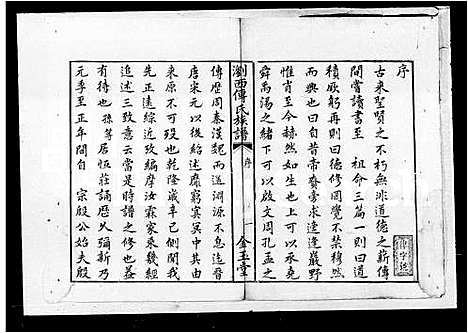 序
古來聖賢之不朽無非道德之薪傳
間嘗讀書至 祖命三篇一則曰道
積厥躬再則曰德修罔覺不禁穆然
而興也及自昔帝賚旁求遠逢巖野
惟肖至今赫然如在良以上承堯
舜禹湯之緒下以啟文周孔孟之
瀏西傅氏族譜
序
一
金玉堂
傳歷周秦漢魏而遂淵源不息迄晉
唐宋元以後紛述靡窮冥冥中其由
來原不可沒也乾隆歲辛己側聞我
先正遠綜近攷編摩汝霖家乘幾經
追述三致意云當是時譜之修也蓋
有待也 孫等居恆莊誦歷久彌新乃
元季至正年間自 宗殷公始夫殷